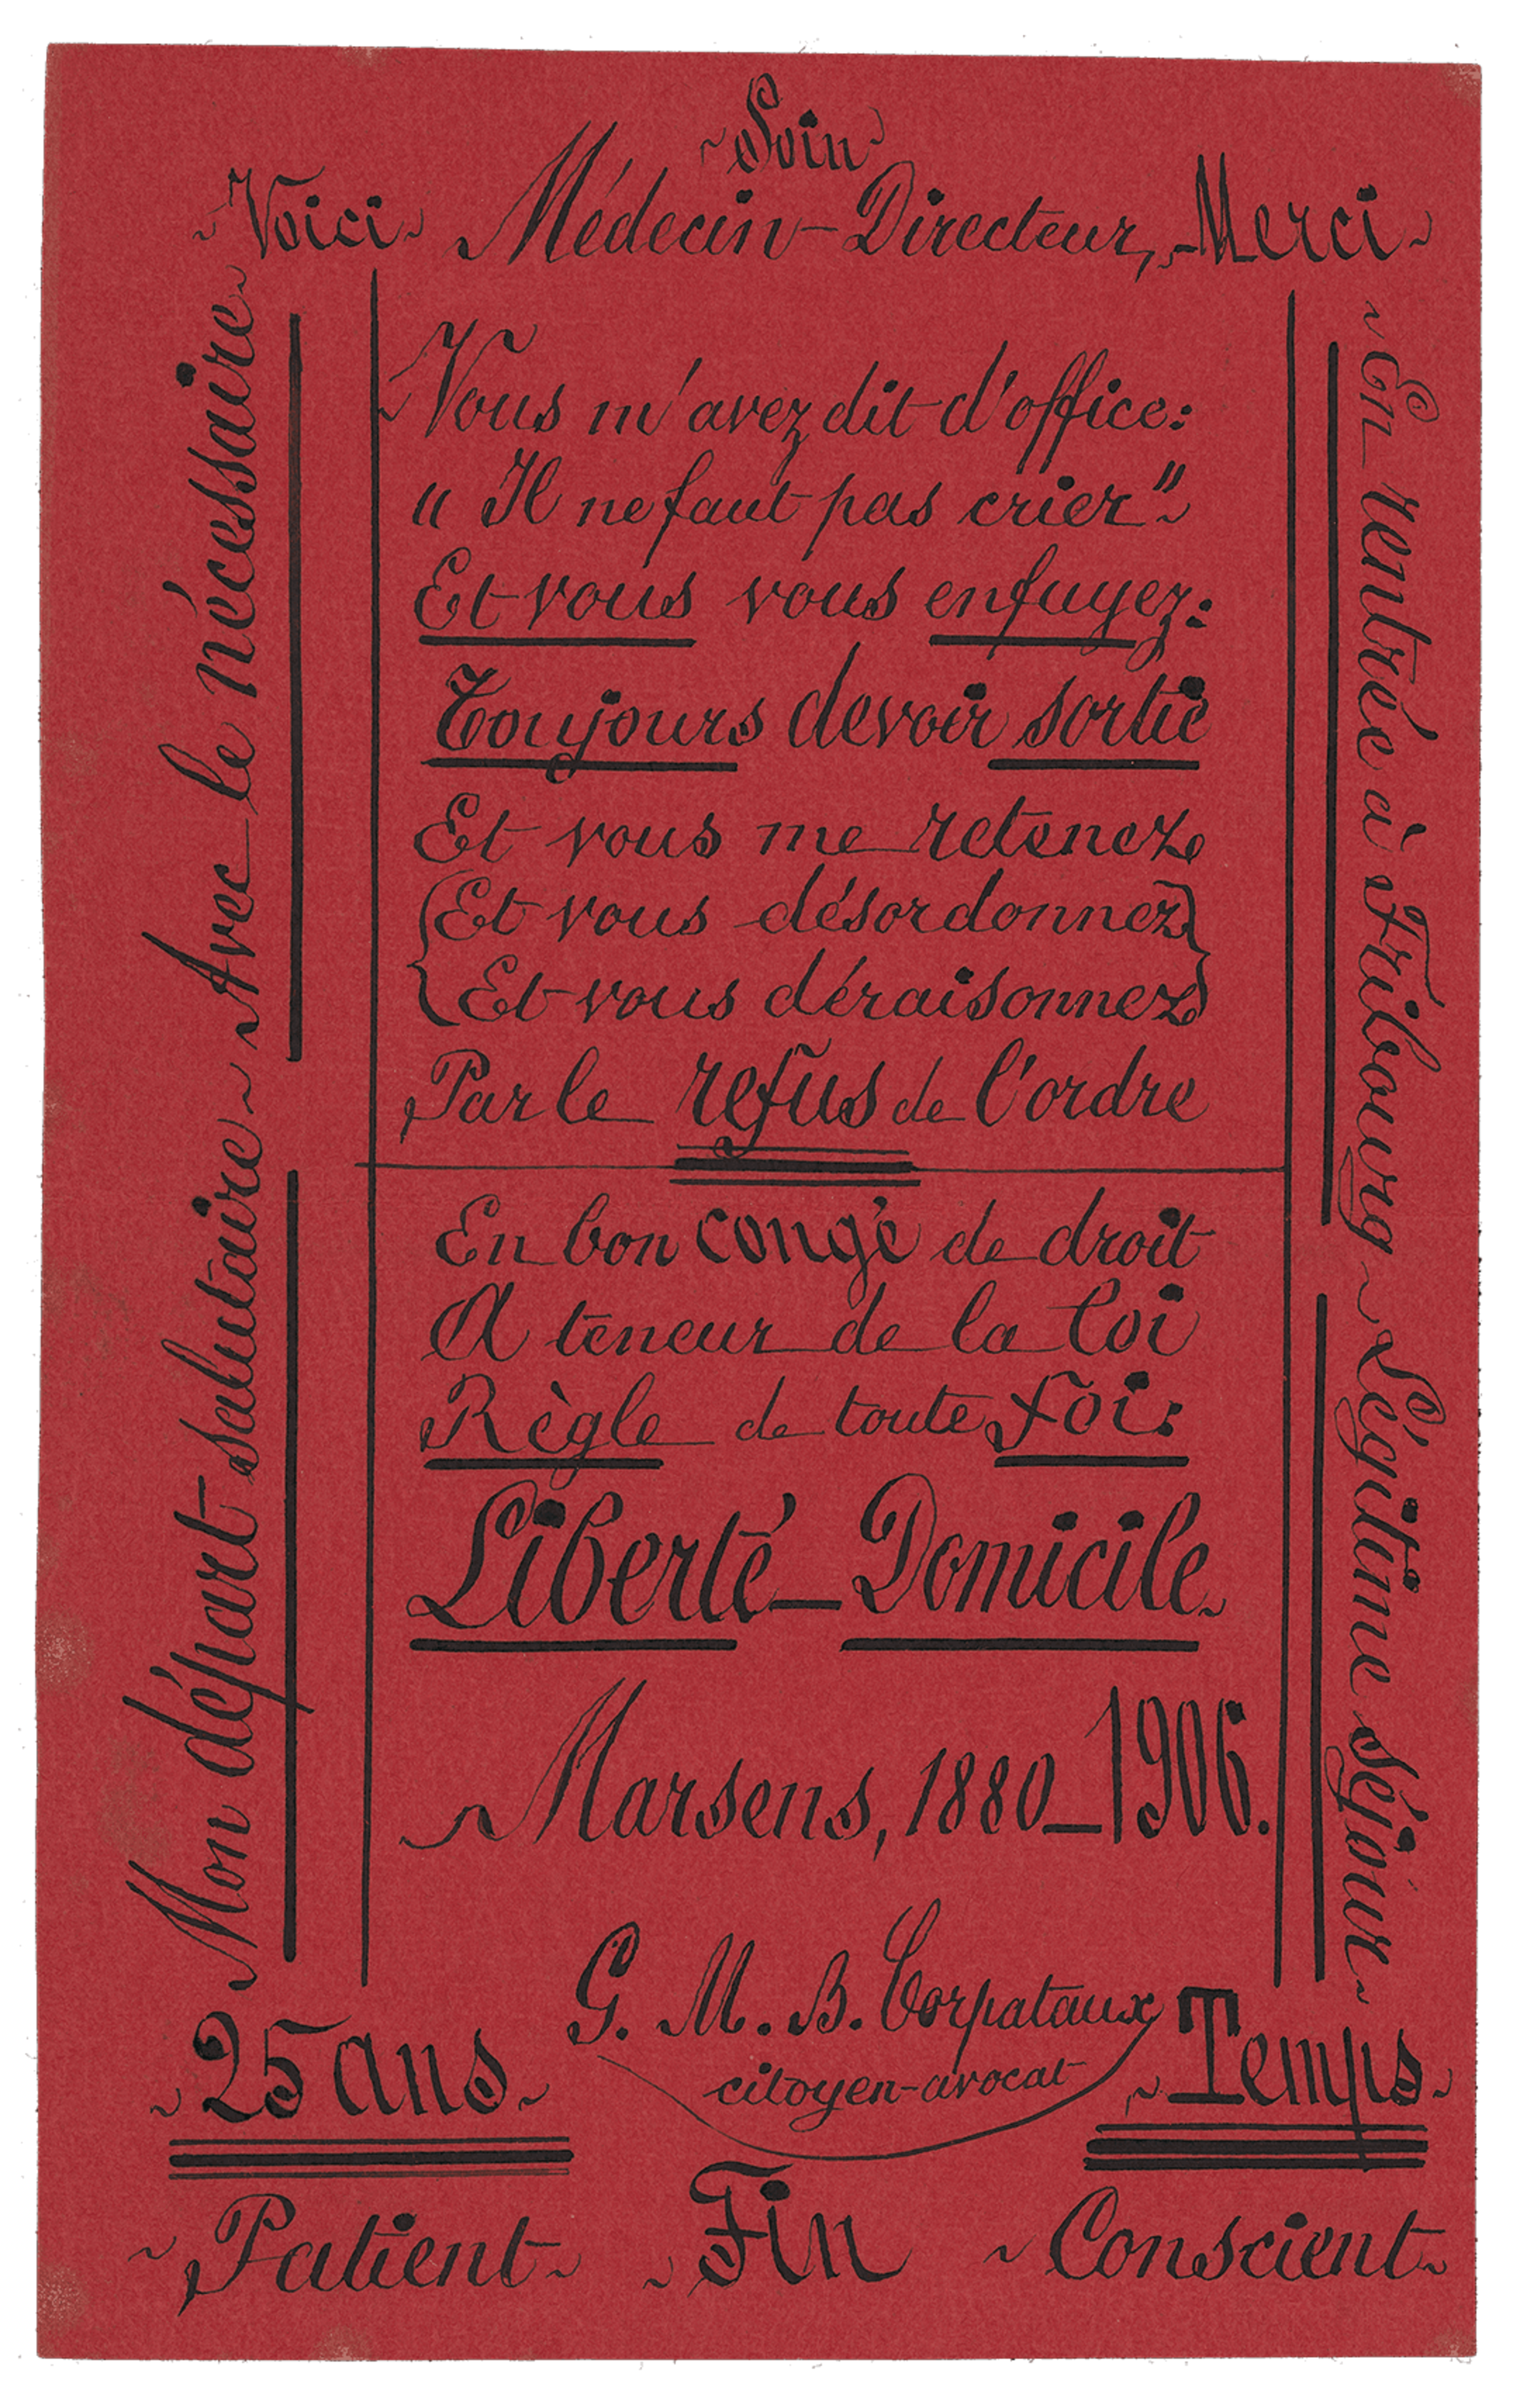 Soin
Voici Médecin-Directeur, Merci
Mon départ salutaire Avec le nécessaire
Vous m'avez dit d'office:
"Il ne faut pas crier"
Et vous vous enfuyez:
Toujours devoir sortie
Et vous me retenez
Et vous désordonnez
Et vous déraisonnez
Par le refus de l'ordre
En bon congé de droit
A teneur de la loi
Règle de toute foi:
Liberté - Domicile
Marsens, 1880-1906.
En rentrée à Fribourg Légitime séjour
G. M. B. Corpataux
citoyen-avocat
25 ans Temps
Patient Fin Conscient